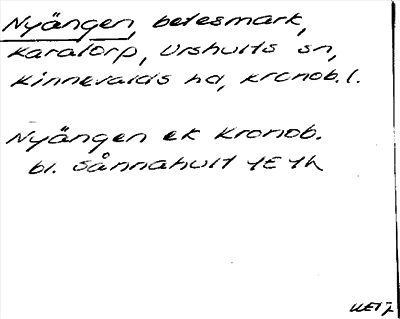 Nyängen, betesmark,
Karatorp, Urshults sn,
Kinnevalds hd, Kronob. l.
Nyängen ek Kronob.
bl. Sånnahult 4E 4h